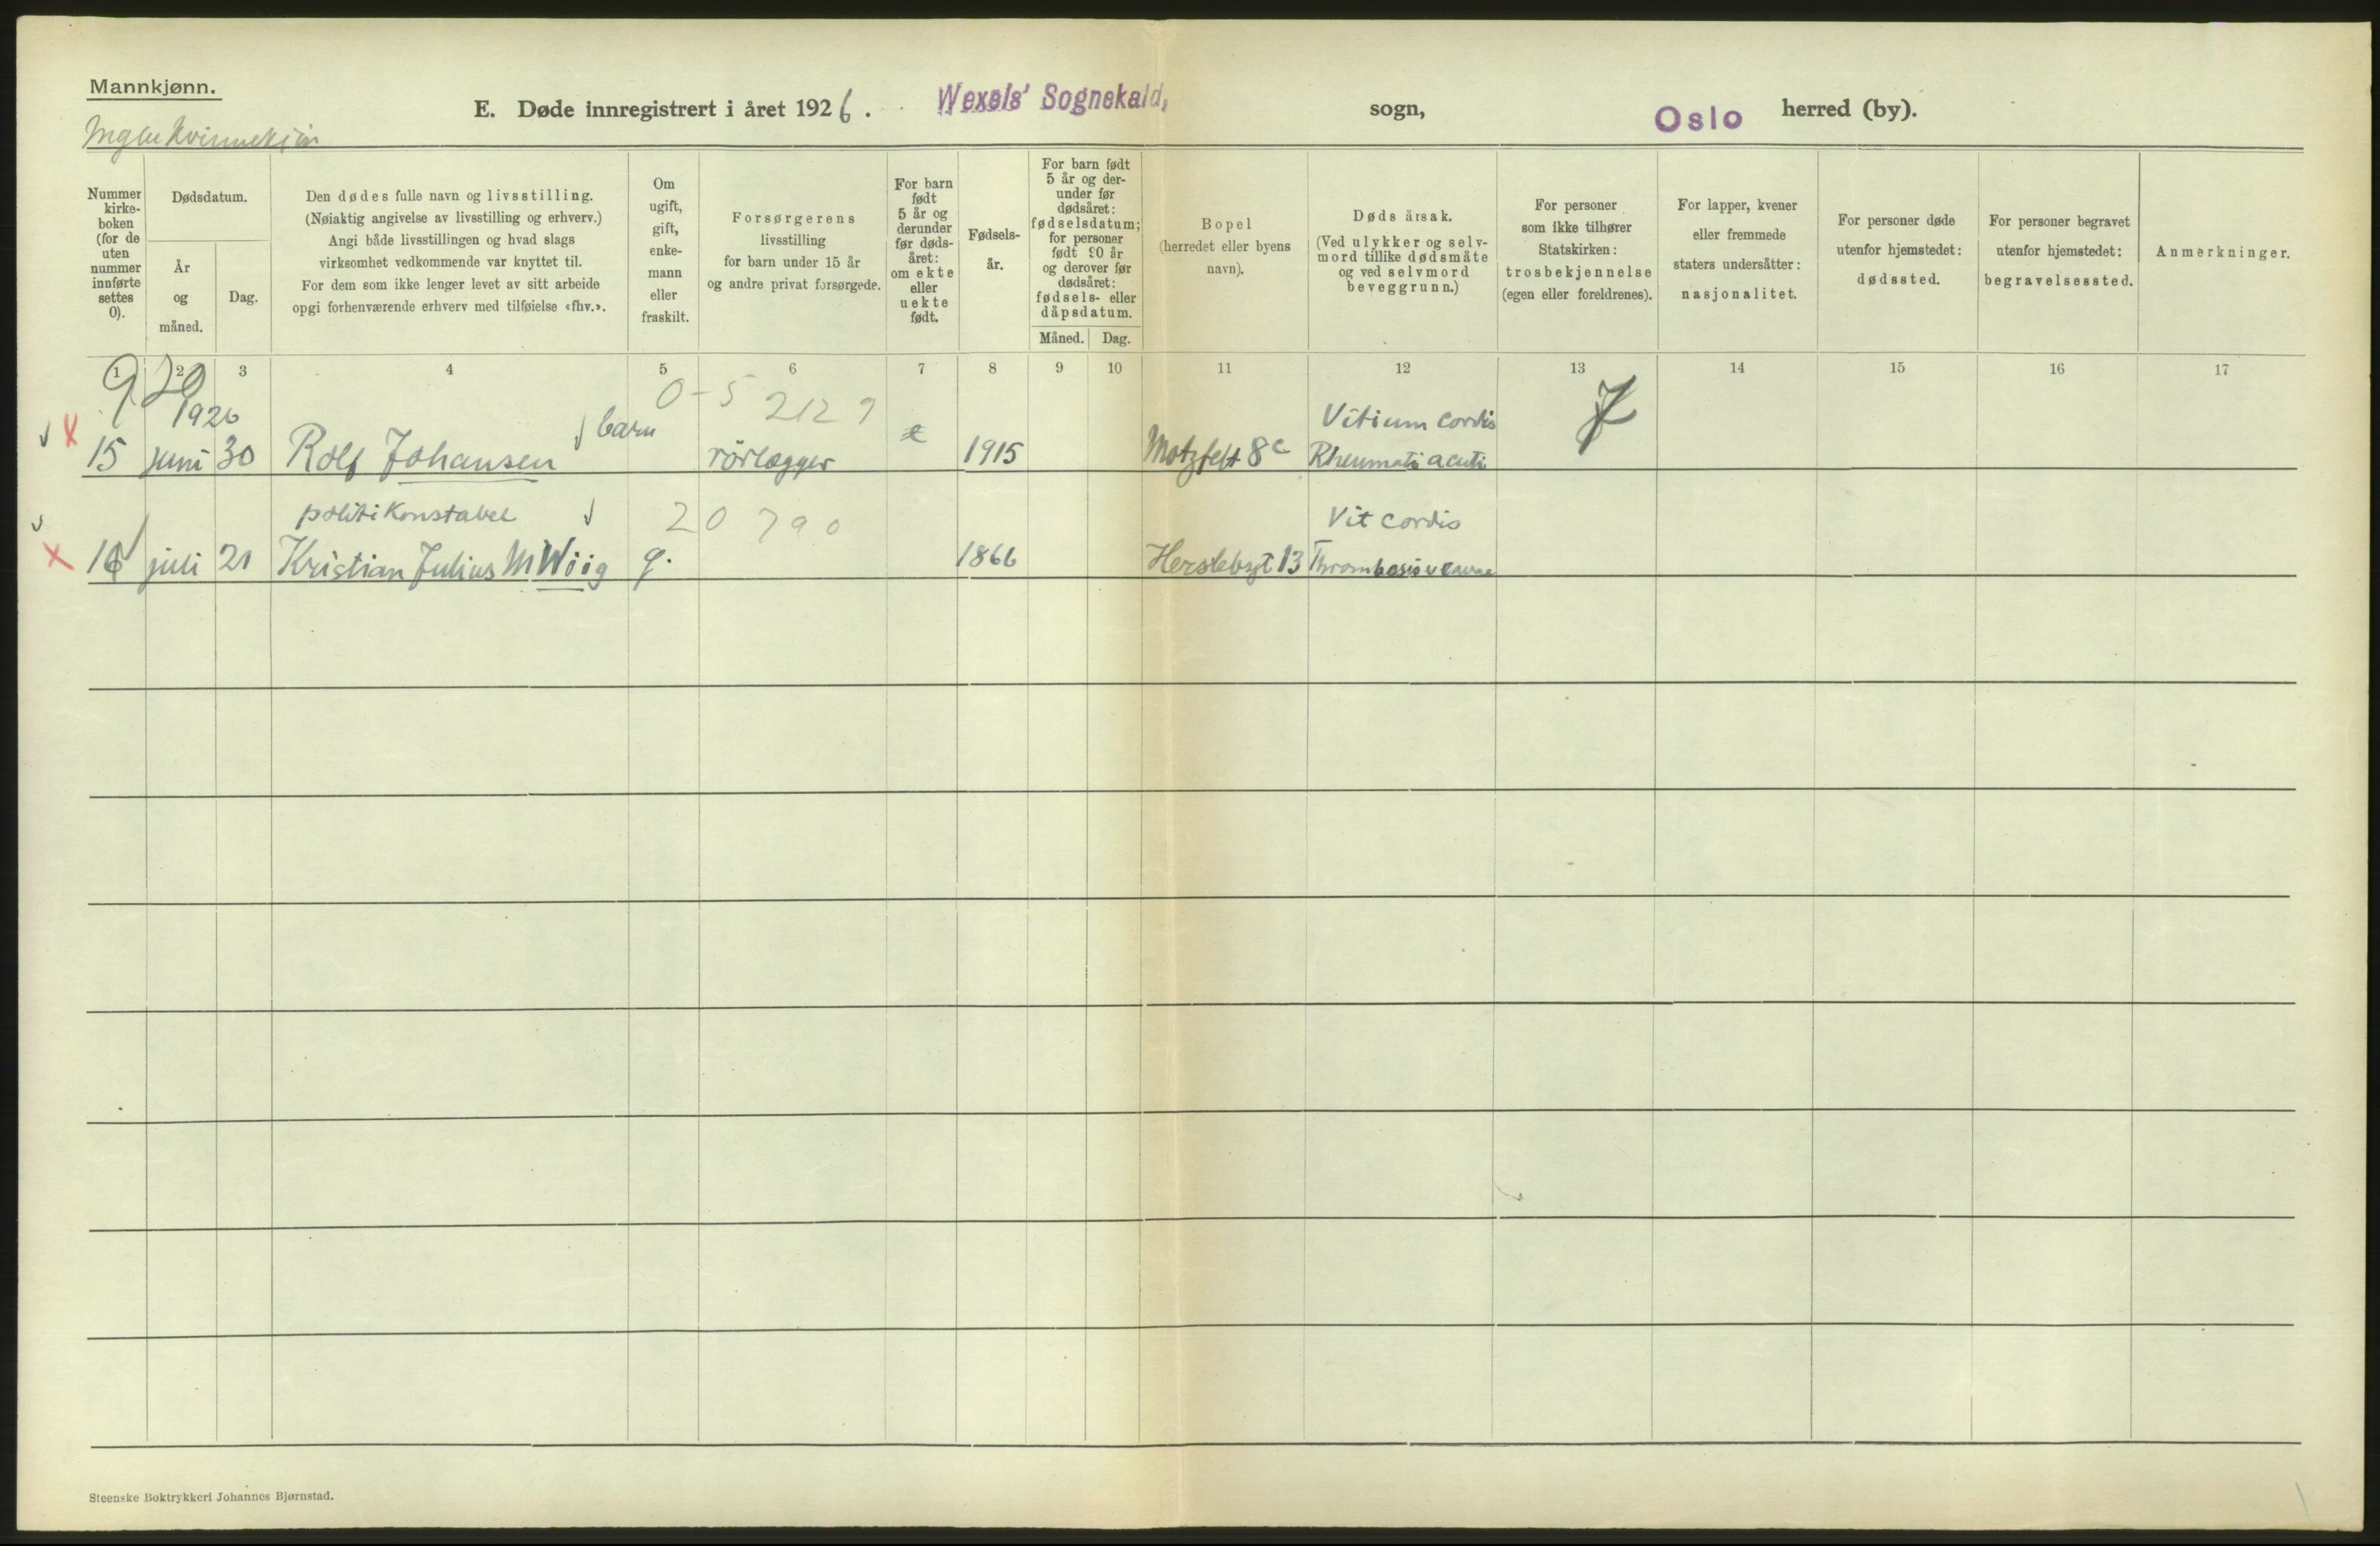 Mannkjønn.
E. Døde innregistrert i året 1926. Wexels' Sognekald, sogn, Oslo herred (by).
Nummer kirke- boken (for de uten nummer innførte settes 0).
Dødsdatum.
År og måned.
Dag.
Den dødes fulle navn og livsstilling.
(Nøiaktig angivelse av livsstilling og erhverv.)
Angi både livsstillingen og hvad slags
virksomhet vedkommende var knyttet til.
For dem som ikke lenger levet av sitt arbeide
opgi forhenværende erhverv med tilføielse «fhv.».
Om ugift, gift, enke- mann eller fraskilt.
Forsørgerens
livsstilling
for barn under 15 år
og andre privat forsørgede.
For barn født 5 år og derunder før døds- året: om ekte eller uekte født.
Fødsels- år.
For barn født 5 år og der- under før dødsåret: fødselsdatum; for personer født 90 år og derover før dødsåret: fødsels- eller dåpsdatum.
Måned. Dag.
Bopel
(herredet eller byens
navn).
Dødsårsak.
(Ved ulykker og selv-
mord tillike dødsmåte
og ved selvmord
beveggrunn.)
For personer
som ikke tilhører
Statskirken:
trosbekjennelse
(egen eller foreldrenes).
For lapper, kvener
eller fremmede
staters undersåtter:
nasjonalitet.
For personer døde
utenfor hjemstedet:
dødssted.
For personer begravet
utenfor hjemstedet:
begravelsessted.
Anmerkninger.
1 2 3 4 5 6 7 8 9 10 11 12 13 14 15 16 17
920
0-5 2129
1926 barn Vitium cordis
15 juni 30 Rolf Johansen rörlægger e 1915 Motzfelt 8c Rheumati acuti
politikonstabel 20 790 Vit cordis
16 juli 21 Kristian Julius M Wiig g. 1866 Herslebsgt 13 Thrombosis v cavae
Steenske Boktrykkeri Johannes Bjørnstad.